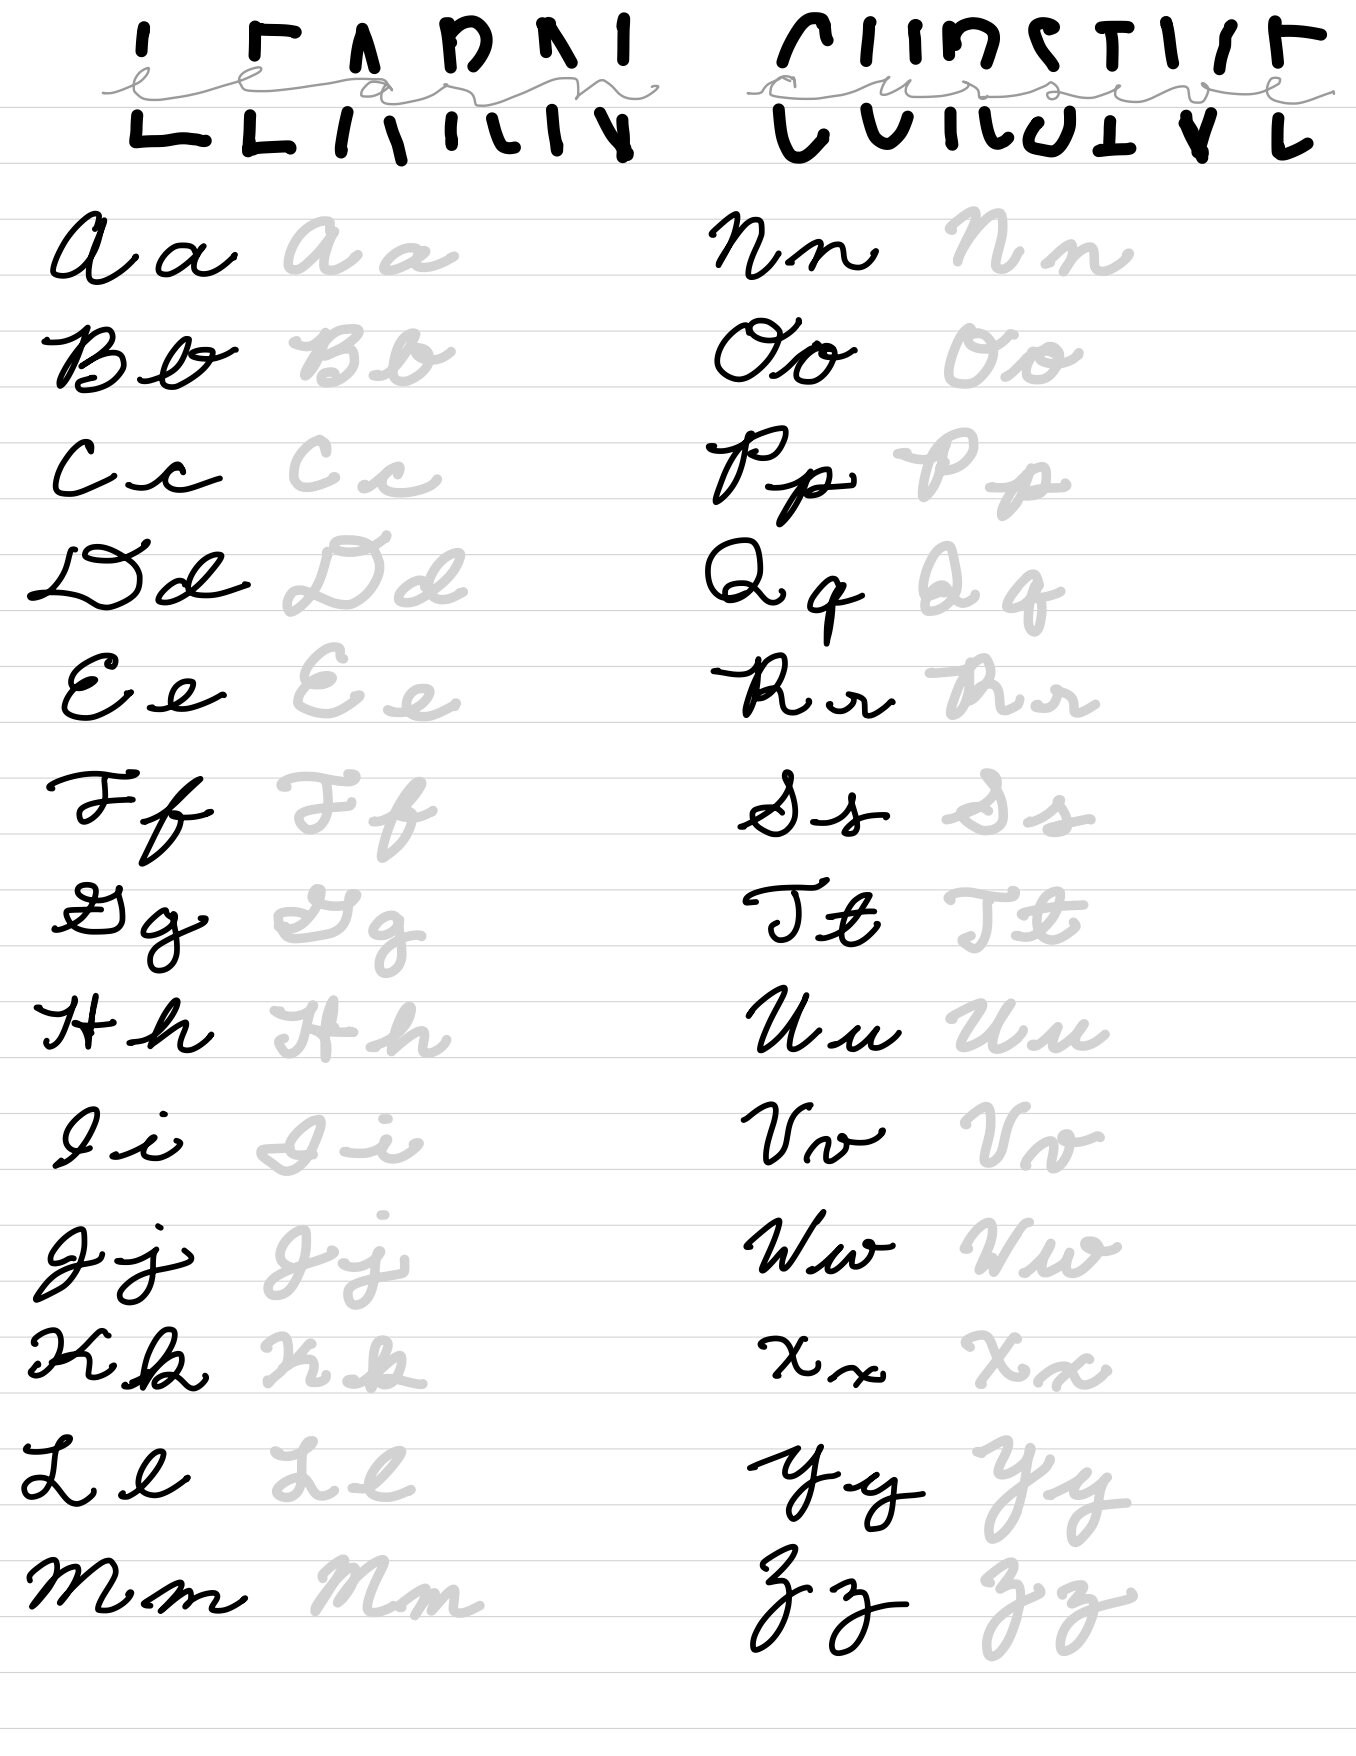 LEARN CURSIVE
learn cursive
Aa Aa
Bb Bb
Cc Cc
Dd Dd
Ee Ee
Ff Ff
Gg Gg
Hh Hh
Ii Ii
Jj Jj
Kk Kk
Ll Ll
Mm Mm
Nn Nn
Oo Oo
Pp Pp
Qq Qq
Rr Rr
Ss Ss
Tt Tt
Uu Uu
Vv Vv
Ww Ww
Xx Xx
Yy Yy
Zz Zz